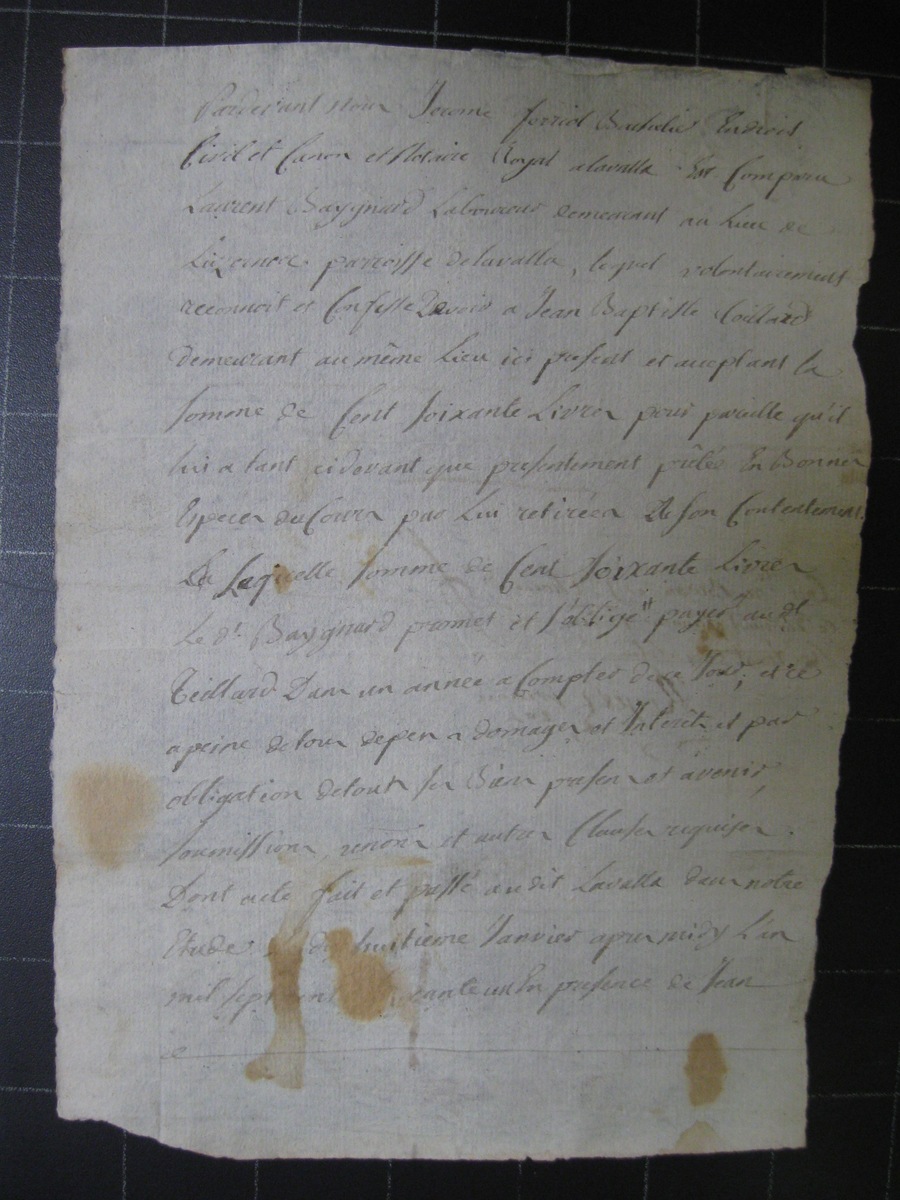 Pardevant Nous Jerome ferriol Bachelier En droit
Civil et Canon et Notaire Royal a lavalla Est Comparu
Laurent Baygnard Laboureur demeurant au Lieu de
paroisse delavalla, lequel volontairement
reconnoit et Confesse Devoir a Jean Baptiste
demeurant au même Lieu ici present et acceptant la
somme de Cent soixante Livres pour pareille qu'il
lui a tant cidevant que presentement prêtés En Bonnes
Especes du Cours par Lui retirées a son Contentement.
La Laquelle somme de Cent soixante Livres
Le dt. Baygnard promet et s'oblige payer au dt
Teillard Dans un année a Compter de ce Jour, et ce
a peine detous depens domages et Interêts et par
obligation detouts ses Biens presens et avenir,
soumissions, renons et autres Clauses requises.
Dont acte fait et passé audit Lavalla dans notre
Etude huitieme Janvier apres midy L'an
mil sept cent En presence de Jean